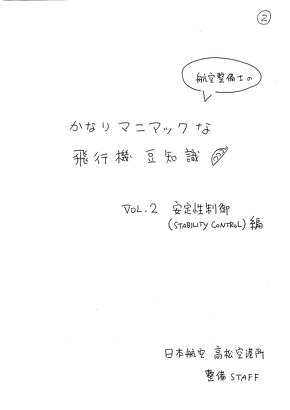 ②
航空整備士の
かなりマニアックな
飛行機豆知識
VOL.2 安定性制御
(STABILITY CONTROL)編
日本航空 高松空港所
整備STAFF